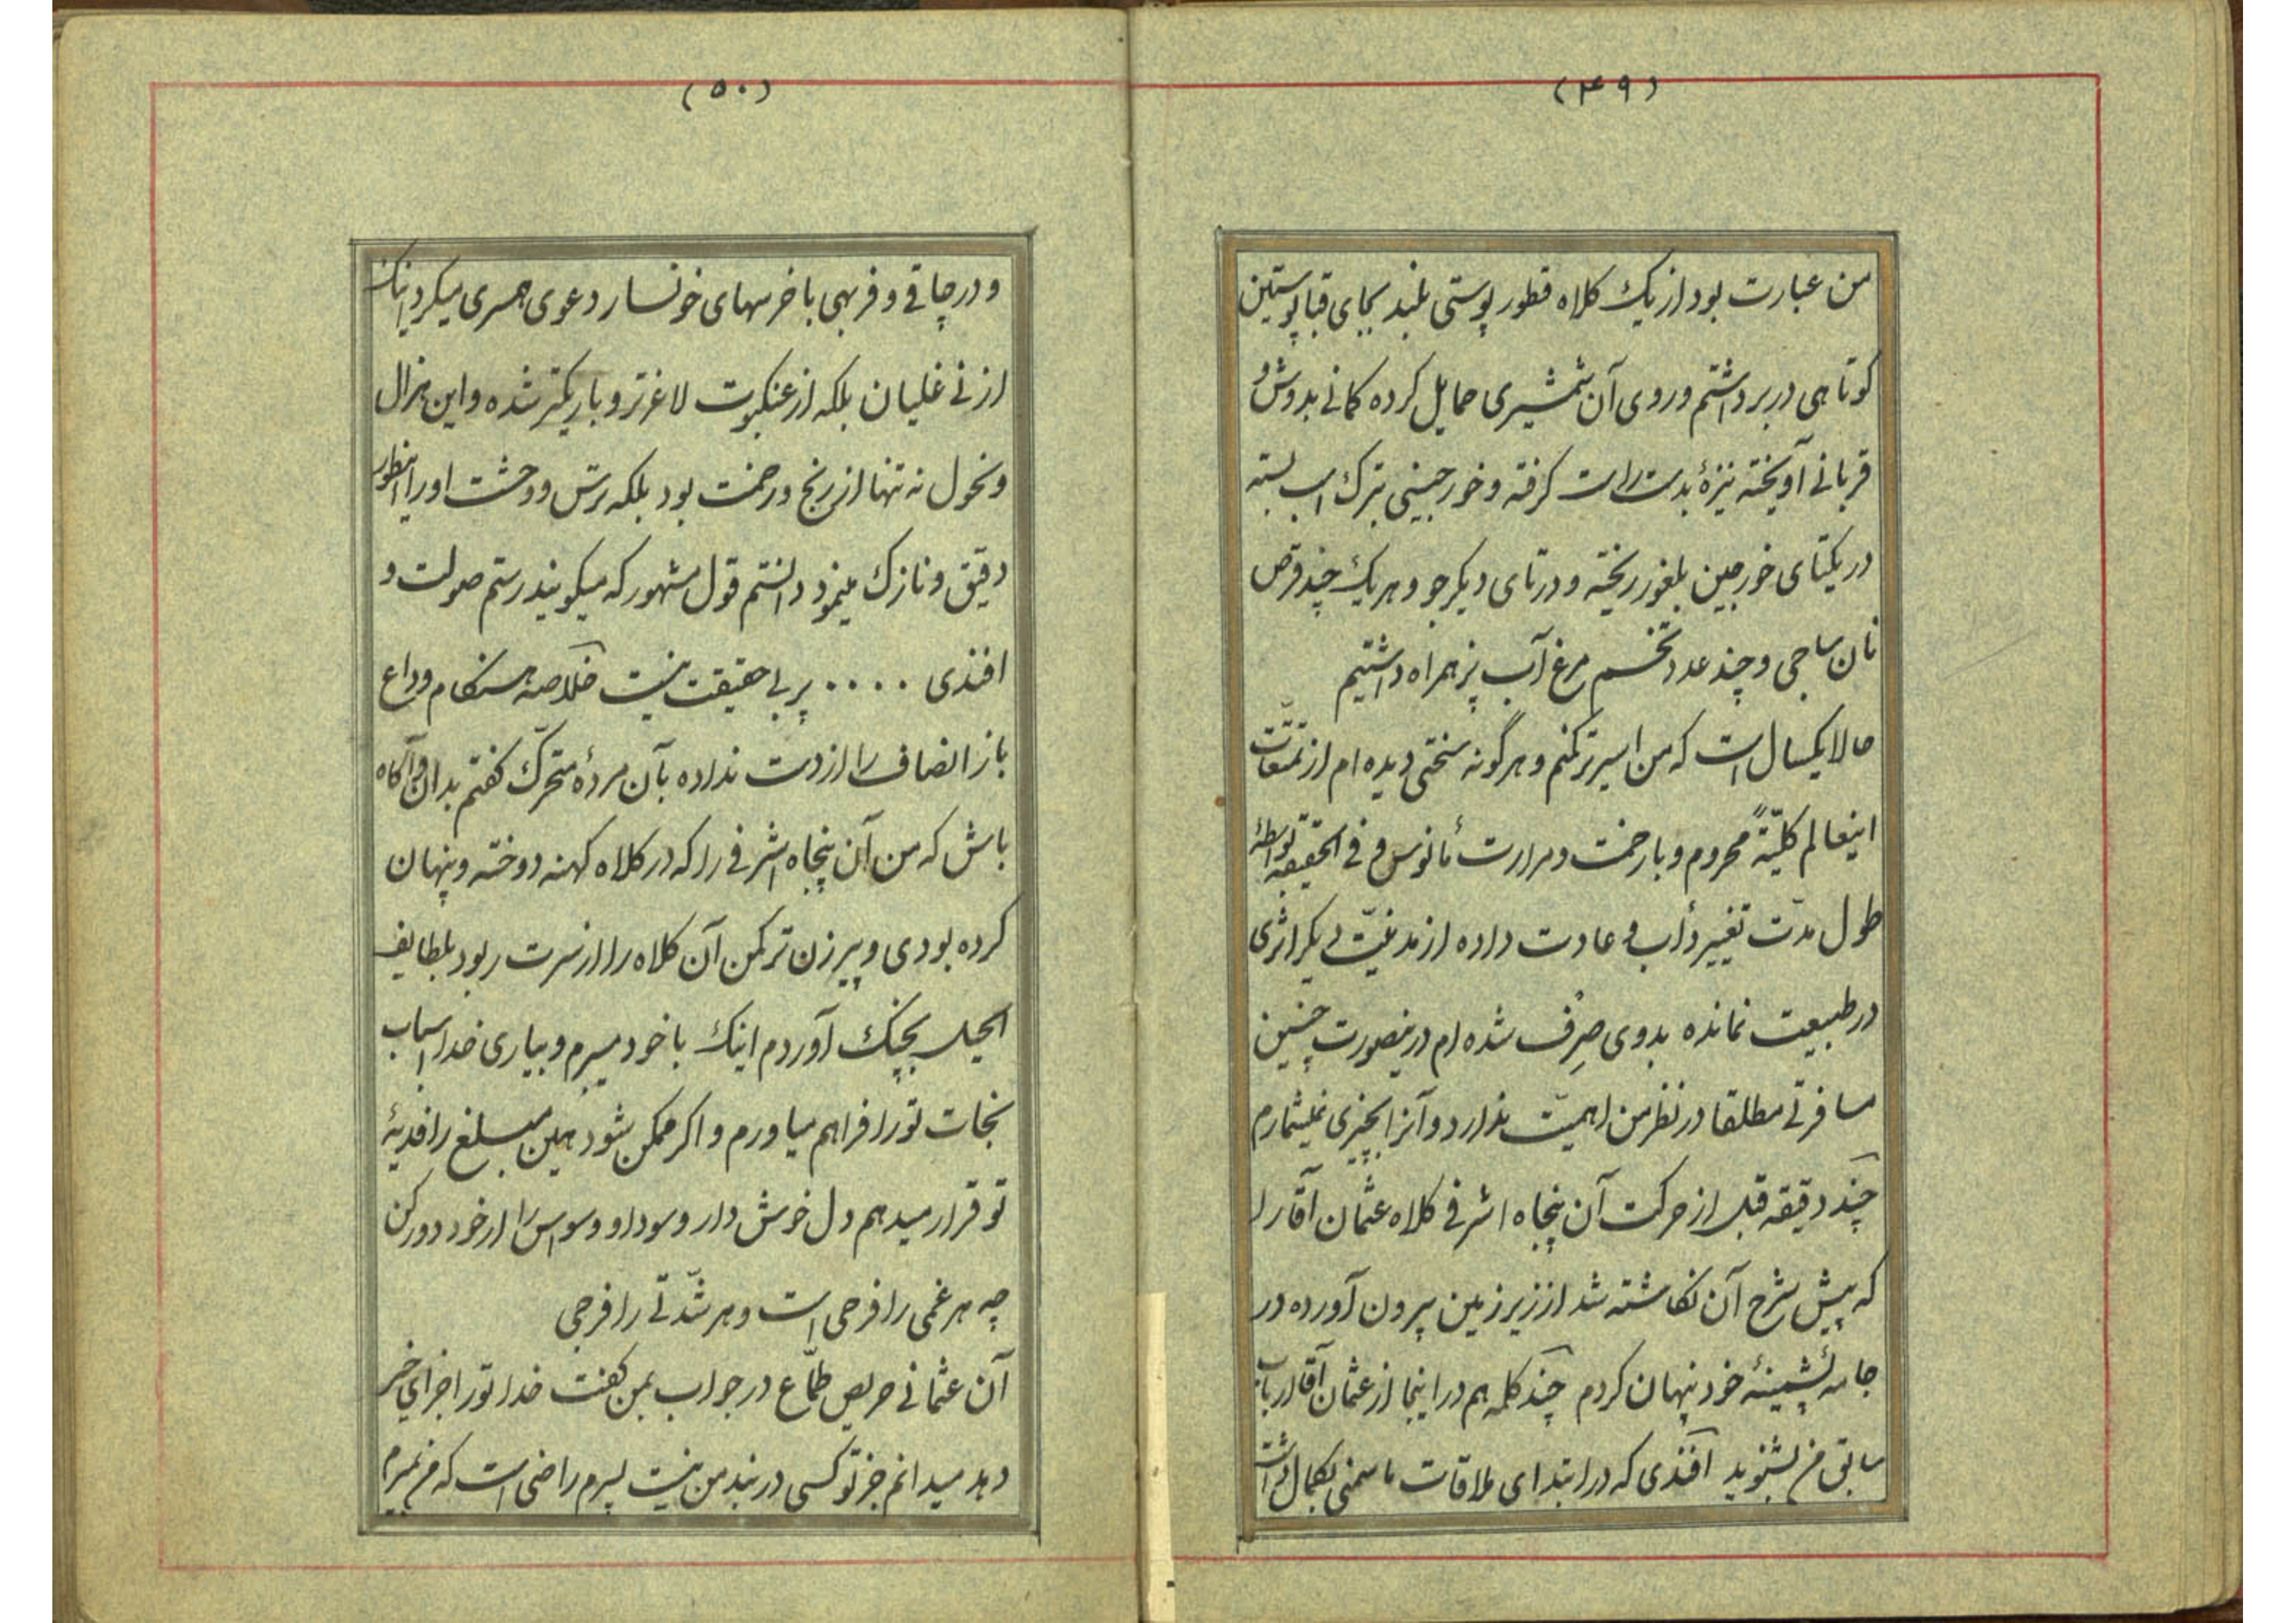 (۴۹)
من عبارت بود از یک کلاه قطور پوستی بلند بجای قبا پوستین
کوتاهی دربر داشتم وروی آن شمشیری حمایل کرده کمانی بدوش و
قربانی آویخته نیزهٔ بدست راست گرفته و خورجینی بترک اسب بسته
در یکتای خورجین بلغور ریخته و در تای دیگر جو و هر یک چند قرص
نان ساجی و چند عدد تخم مرغ آب پز همراه داشتیم
حالا یکسال است که من اسیر ترکمنم و هرگونه سختی دیده ام از تمتّعات
اینعالم کلیّةً محروم و با زحمت و مرارت مأنوس و فی الحقیقه بواسطهٔ
طول مدّت تغییر دأب و عادت داده از مدنیّت دیگر اثری
در طبیعت نمانده بدوی صِرف شده ام درینصورت چنین
مسافرتی مطلقا در نظر من اهمیّت ندارد و آنرا بچیزی نمیشمارم
چند دقیقه قبل از حرکت آن پنجاه اشرفی کلاه عثمان آقا را
که پیش شرح آن نگاشته شد از زیر زمین بیرون آورده در
جامهٔ پشمینهٔ خود پنهان کردم چند کلمه هم در اینجا از عثمان آقا ارباب
سابق من بشنوید افندی که در ابتدای ملاقات ما سمنی بکمال داشت
(۵۰)
و در چاقی و فربهی با خرسهای خونسار دعوی همسری میکرد اینک
از نی غلیان بلکه از عنکبوت لاغرتر و باریکتر شده و این هزال
و نحول نه تنها از رنج و زحمت بود بلکه ترس و وحشت او را اینطور
دقیق و نازک مینمود دانستم قول مشهور که میگویند رستم صولت و
افندی .... پر بی حقیقت نیست خلاصه هنگام وداع
باز انصاف را از دست نداده بآن مردهٔ متحرّک گفتم بدان و آگاه
باش که من آن پنجاه اشرفی را که در کلاه کهنه دوخته و پنهان
کرده بودی و پیر زن ترکمن آن کلاه را از سرت ربود بلطایف
الحیل بچنک آوردم اینک با خود میبرم و بیاری خدا اسباب
نجات تو را فراهم میاورم و اگر ممکن شود همین مبلغ را فدیهٔ
تو قرار میدهم دل خوش دار و سودا و وسواس را از خود دور کن
چه هر غمی را فرحی است و هر شدّتی را فرجی
آن عثمانی حریص طمّاع در جواب بمن گفت خدا تو را جزای خیر
دهد میدانم جز تو کسی در بند من نیست پسرم راضی است که من بمیرم